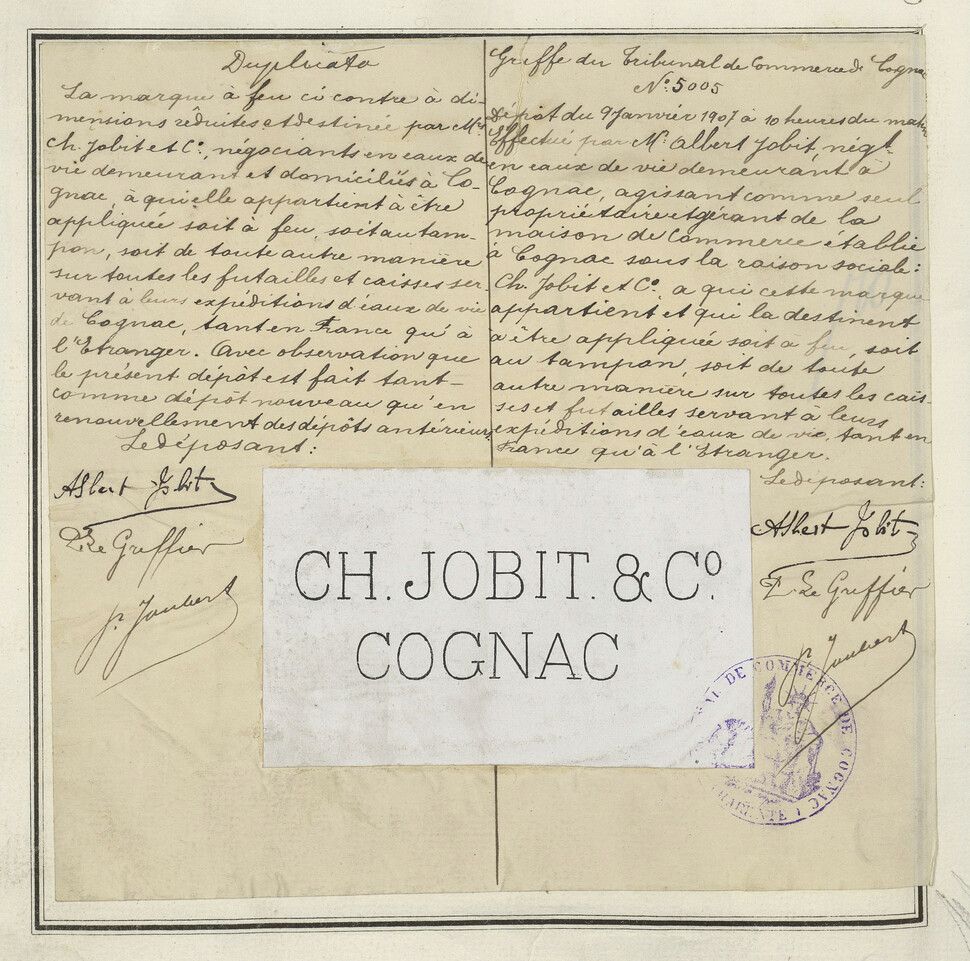 Duplicata
La marque à feu ci contre à di-
mensions réduites et destinée par Mrs
Ch. Jobit et Co., négociants en eaux de
vie demeurant et domiciliés à Co-
gnac, à qui elle appartient à être
appliquée soit à feu, soit au tam-
pon, soit de toute autre manière
sur toutes les futailles et caisses ser-
vant à leurs expéditions d'eaux de vie
de Cognac, tant en France qu'à
l'Etranger. Avec observation que
le présent dépôt est fait tant
comme dépôt nouveau qu'en
renouvellement des dépôts antérieurs
Le déposant:
Albert Jobit
P. Le Greffier
p. Joubert
Greffe du Tribunal de Commerce de Cognac
No. 5005
Dépôt du 9 Janvier 1907 à 10 heures du matin
Effectué par M. Albert Jobit, négt.
en eaux de vie demeurant à
Cognac, agissant comme seul
propriétaire et gérant de la
maison de Commerce établie
à Cognac sous la raison sociale:
Ch. Jobit et Co. a qui cette marque
appartient et qui la destinent
à être appliquée soit à feu, soit
au tampon, soit de toute
autre manière sur toutes les cais-
ses et futailles servant à leurs
expéditions d'eaux de vie, tant en
France qu'à l'Etranger.
Le déposant:
Albert Jobit
P. Le Greffier
p. Joubert
CH. JOBIT. & Co.
COGNAC
DE COMMERCE DE COGNAC